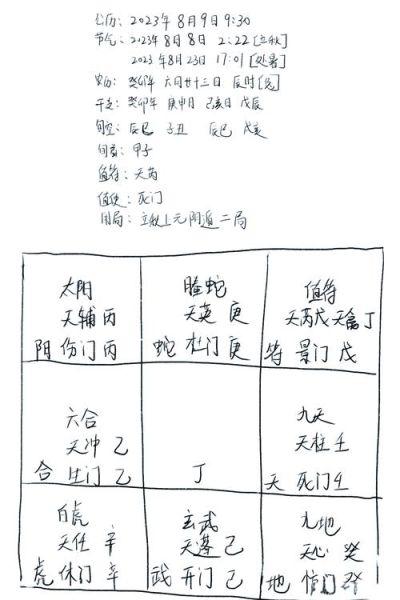 公历: 2023年8月9日9:30
节气: 2023年8月8日 2:22[立秋]
2023年8月23日 17:01[处暑]
农历: 癸卯年 六月廿三日 辰时
干支: 癸卯年 庚申月 己亥日 戊辰
旬空: 辰巳 子丑 辰巳 戌亥
旬首: 甲子
值符: 天芮
值使: 死门
用局: 立秋上元阴遁二局
太阴
天辅丙
阴 伤门丙
螣蛇
天英 庚
蛇 杜门 庚
值符
天芮戊天禽丁
符 景门 戊
六合
天冲 乙
合 生门 乙
丁
九天
天柱壬
天 死门壬
白虎
天任 辛
虎 休门 辛
玄武
天蓬 己
武 开门 己
九地
天心 癸
地 惊门 癸